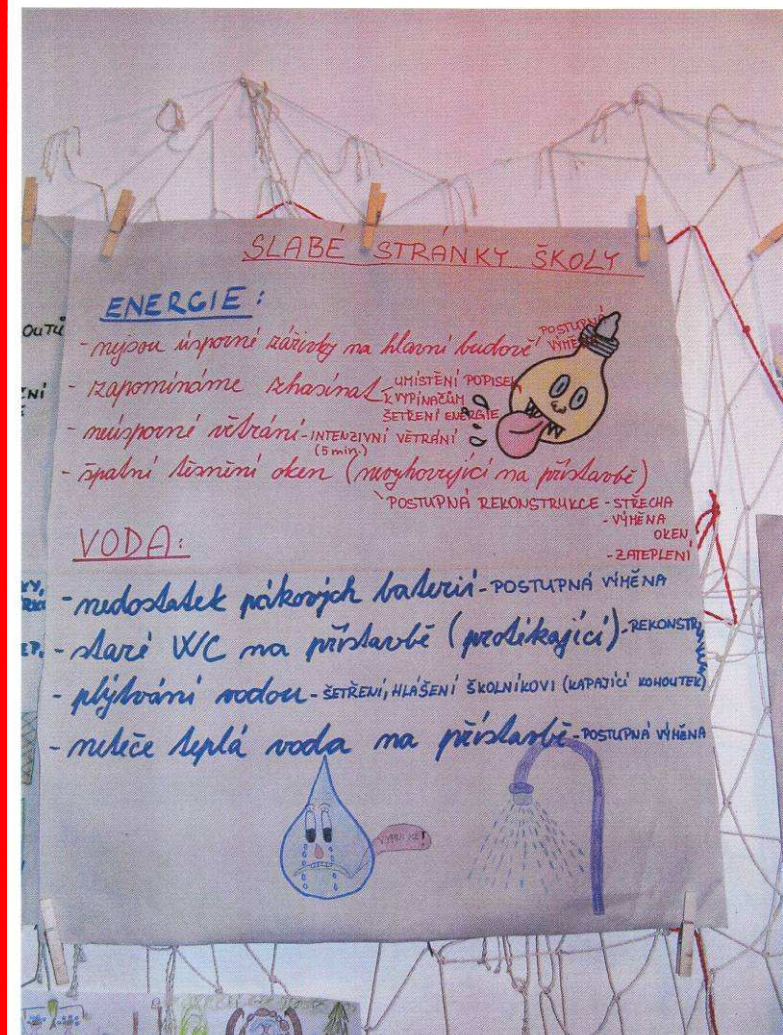 SLABÉ STRÁNKY ŠKOLY
ENERGIE:
- nejsou úsporné zářivky na hlavní budově POSTUPNÁ
VÝMĚNA
- zapomínáme zhasínat UMÍSTĚNÍ POPISEK
K VYPÍNAČŮM
ŠETŘENÍ ENERGIE
- neúsporné větrání - INTENZIVNÍ VĚTRÁNÍ
(5 min.)
- špatní těsnění oken (nevyhovující na přístavbě)
POSTUPNÁ REKONSTRUKCE - STŘECHA
- VÝMĚNA
OKEN
- ZATEPLENÍ
VODA:
- nedostatek pákových baterií - POSTUPNÁ VÝMĚNA
- staré WC na přístavbě (protékající) - REKONSTR
- plýtvání vodou - ŠETŘENÍ, HLÁŠENÍ ŠKOLNÍKOVI (KAPAJÍCÍ KOHOUTEK)
- neteče teplá voda na přístavbě - POSTUPNÁ VÝMĚNA
VYPNI MĚ!